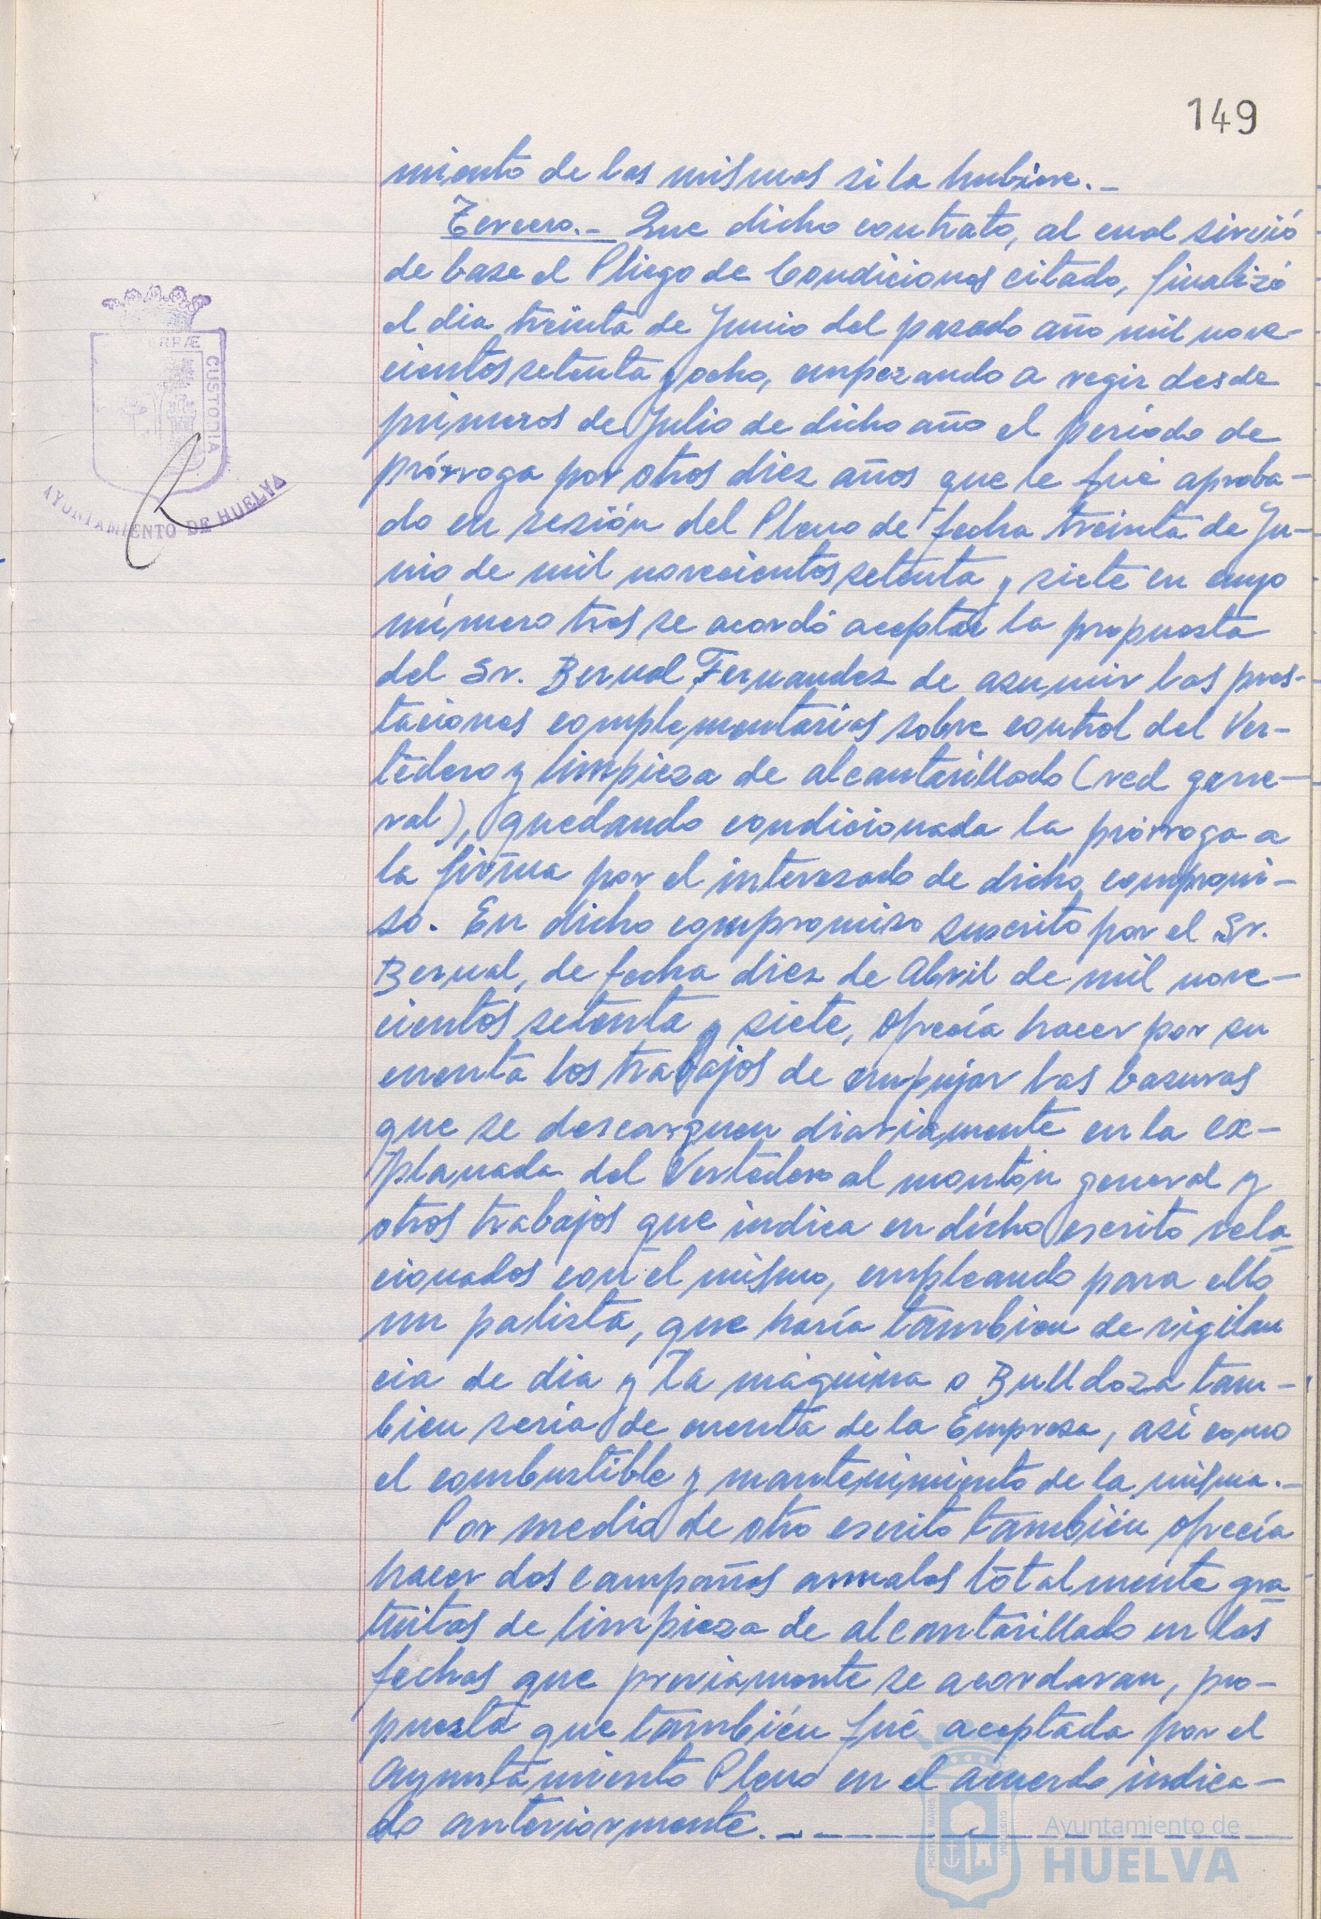 149
miento de las mismas si la hubiere.-
Tercero.- Que dicho contrato, al cual sirvió
de base el Pliego de Condiciones citado, finalizó
el dia treinta de Junio del pasado año mil nove-
cientos setenta y ocho, empezando a regir desde
primeros de Julio de dicho año el período de
prórroga por otros diez años que le fué aproba-
do en sesión del Pleno de fecha treinta de Ju-
nio de mil novecientos setenta y siete en cuyo
número tres se acordó aceptar la propuesta
del Sr. Bernal Fernandez de asumir las pres-
taciones complementarias sobre control del Ver-
tedero y limpieza de alcantarillado (red gene-
ral), quedando condicionada la prórroga a
la firma por el interesado de dicho compromi-
so. En dicho compromiso suscrito por el Sr.
Bernal, de fecha diez de Abril de mil nove-
cientos setenta y siete, ofrecía hacer por su
cuenta los trabajos de empujar las basuras
que se descarguen diariamente en la ex-
planada del Vertedero al montón general y
otros trabajos que indica en dicho escrito rela-
cionados con el mismo, empleando para ello
un palista, que haría tambien de vigilan
cia de dia y la máquina o Bulldoza tam-
bien sería de cuenta de la Empresa, asi como
el combustible y mantenimiento de la misma.-
Por medio de otro escrito también ofrecía
hacer dos campañas anuales totalmente gra-
tuitas de limpieza de alcantarillado en las
fechas que previamente se acordaran, pro-
puesta que también fué aceptada por el
Ayuntamiento Pleno en el acuerdo indica-
do anteriormente.-
RRÆ
CUSTODIA
AYUNTAMIENTO DE HUELVA
PORTUS MARIS
CUSTODIA
Ayuntamiento de
HUELVA